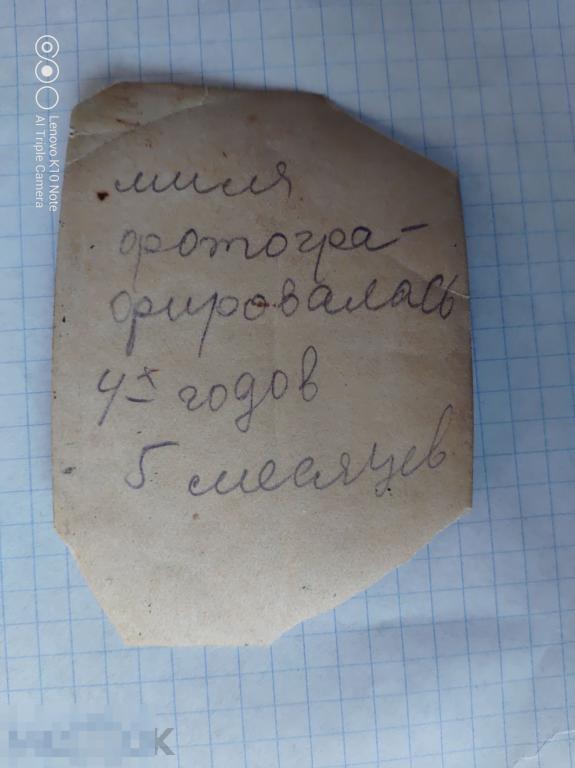 Lenovo K10 Note
AI Triple Camera
миля
фотогра-
фировалась
4х годов
5 месяцев